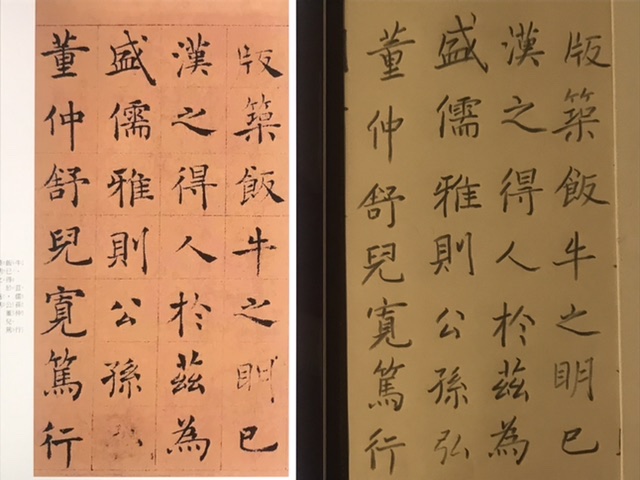 版築飯牛之明已
漢之得人於茲為
盛儒雅則公孫弘
董仲舒兒寬篤行
版築飯牛之明已
漢之得人於茲為
盛儒雅則公孫弘
董仲舒兒寬篤行